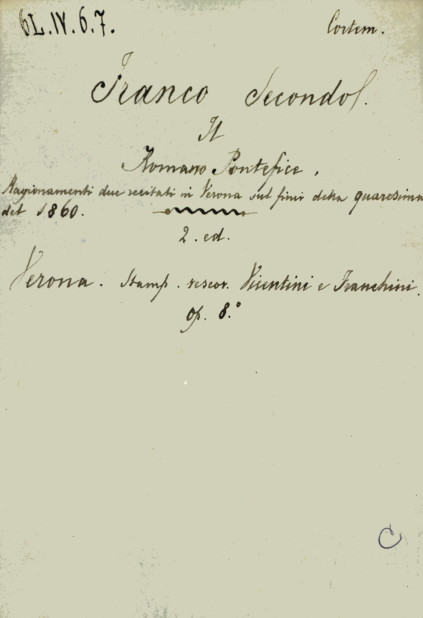 6L.IV.6.7. Contem.
Franco Secondo S.
Il
Romano Pontefice.
Ragionamenti due recitati in Verona sul finir della quaresima
del 1860.
2. ed.
Verona. Stamp. vescov. Vicentini e Franchini.
op. 8.°
C